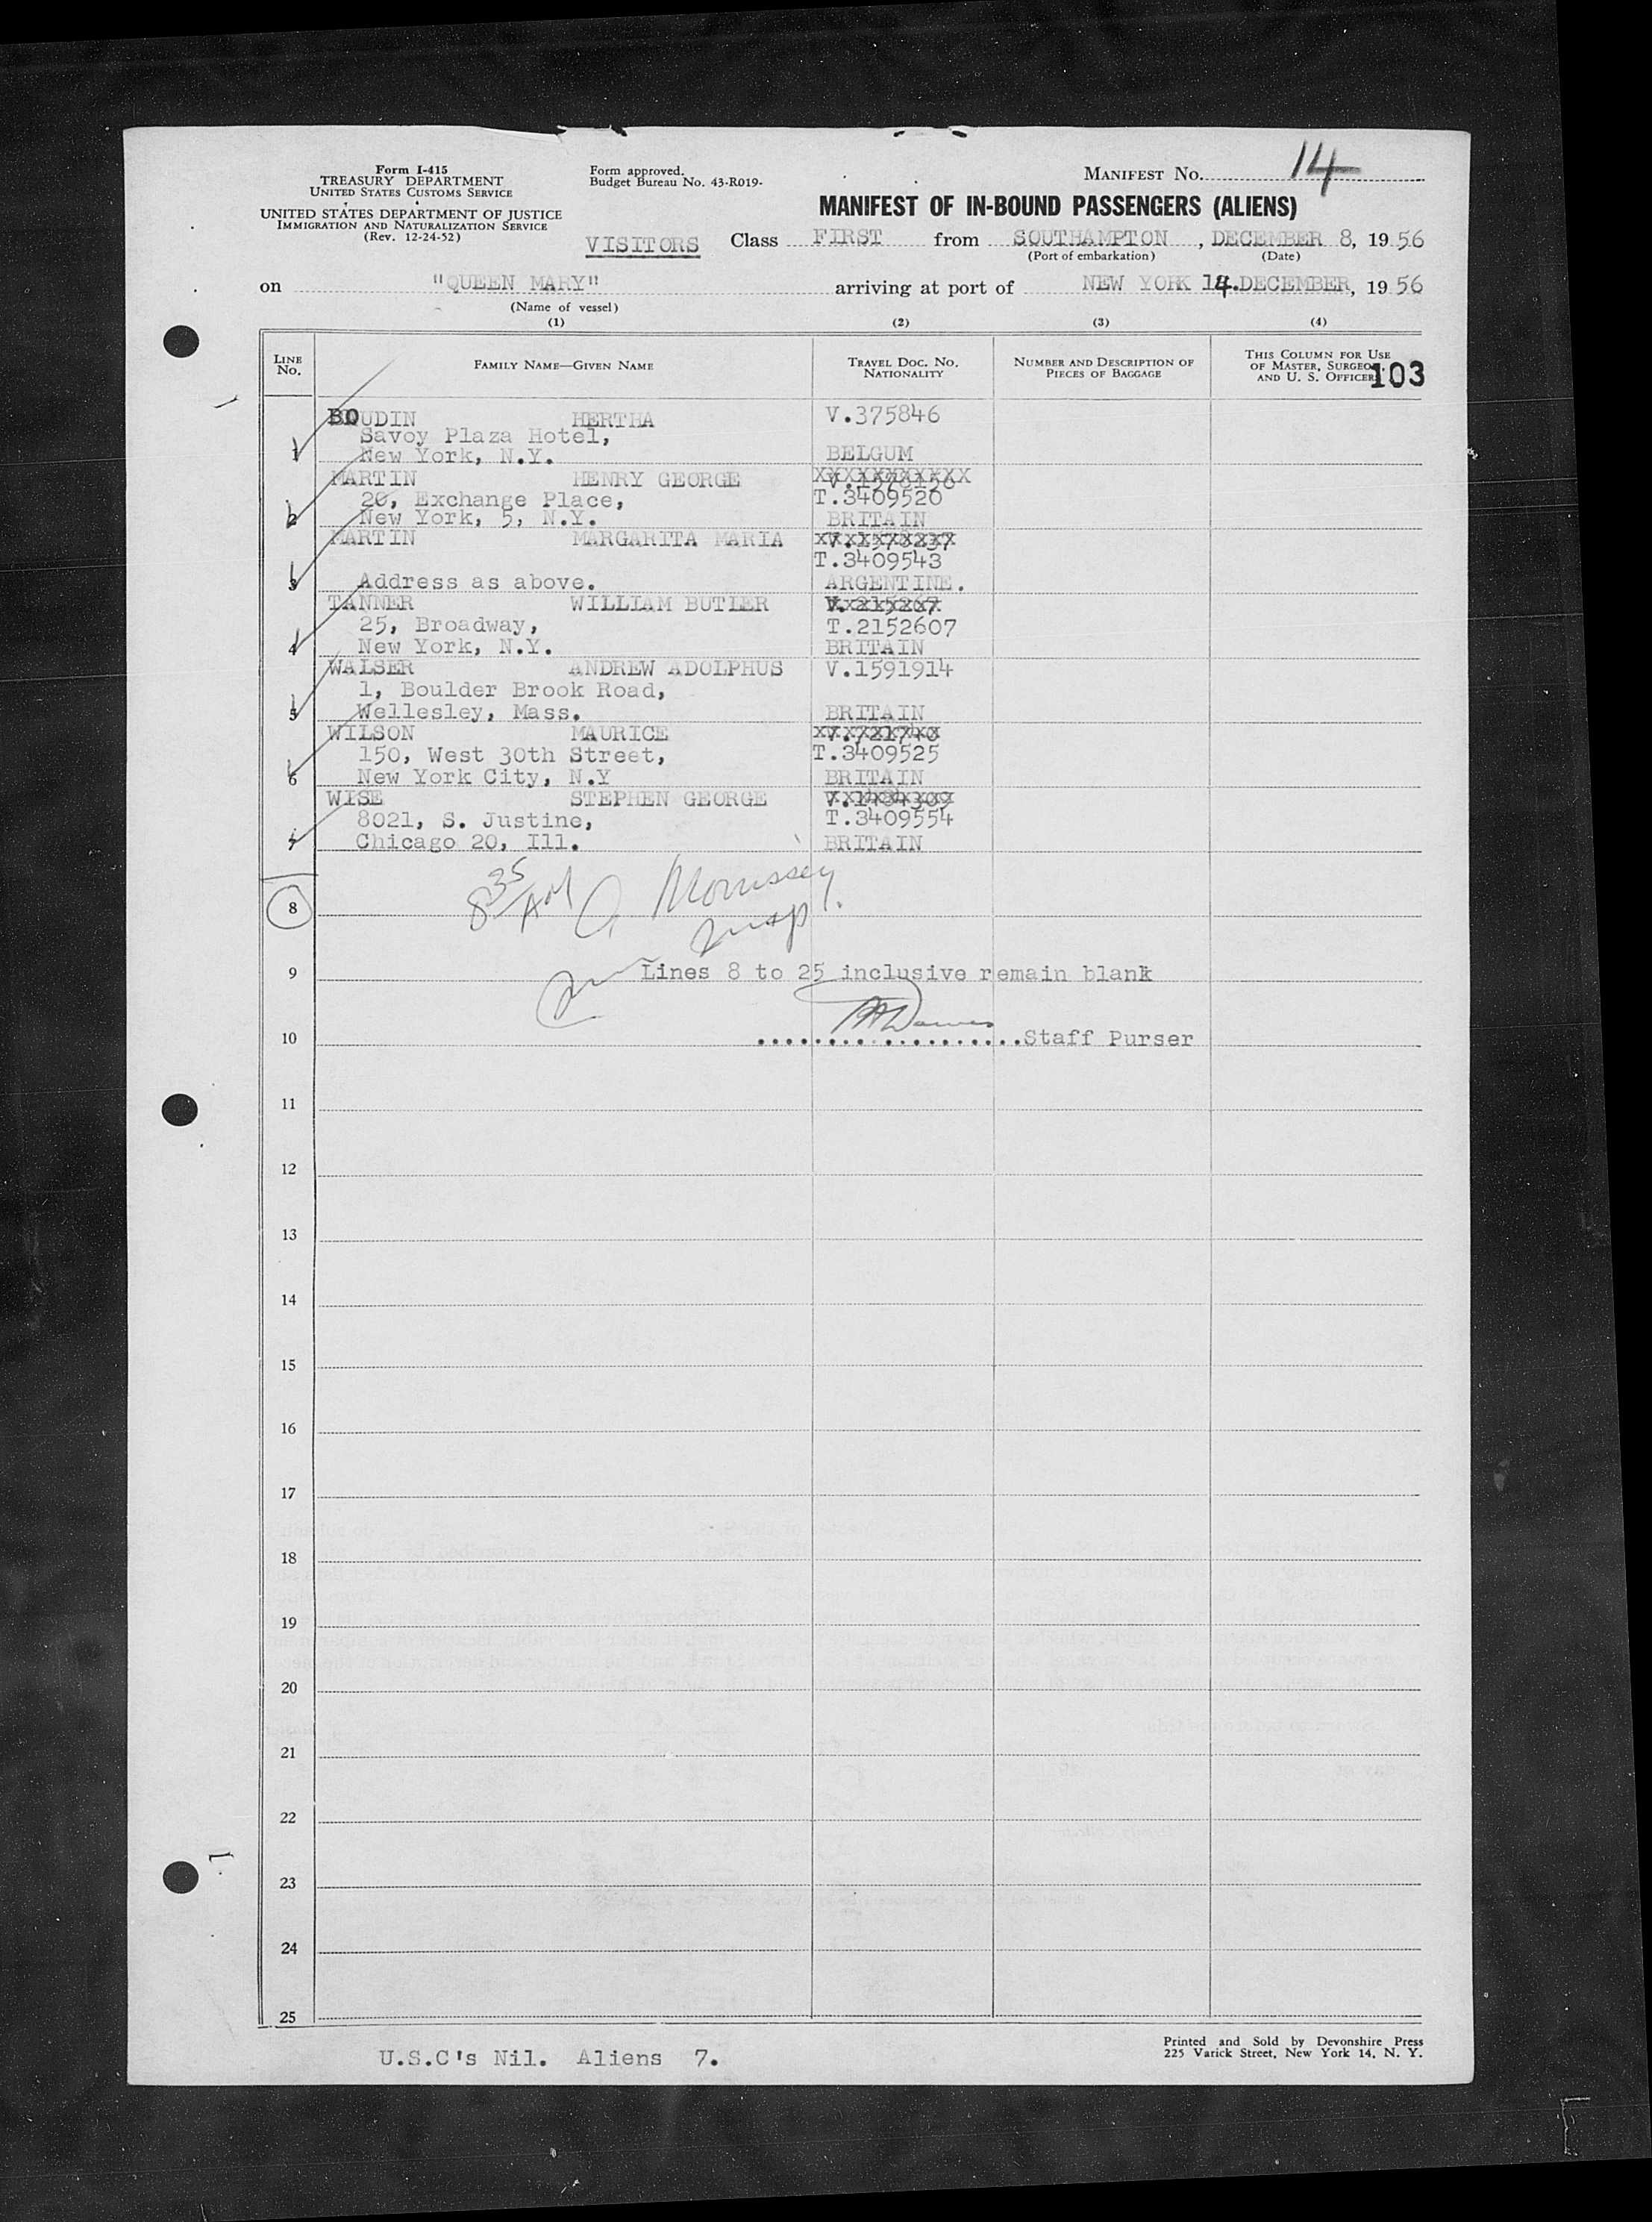 Form I-415
TREASURY DEPARTMENT
UNITED STATES CUSTOMS SERVICE
UNITED STATES DEPARTMENT OF JUSTICE
IMMIGRATION AND NATURALIZATION SERVICE
(Rev. 12-24-52)
Form approved.
Budget Bureau No. 43-R019-
MANIFEST NO. 14
MANIFEST OF IN-BOUND PASSENGERS (ALIENS)
VISITORS Class FIRST from SOUTHAMPTON, DECEMBER 8, 1956
(Port of embarkation) (Date)
on "QUEEN MARY" arriving at port of NEW YORK 14.DECEMBER, 1956
(Name of vessel)
(1) (2) (3) (4)
LINE No. FAMILY NAME—GIVEN NAME TRAVEL DOC. NO. NATIONALITY NUMBER AND DESCRIPTION OF PIECES OF BAGGAGE THIS COLUMN FOR USE OF MASTER, SURGEON, AND U. S. OFFICERS
103
BOUDIN HERTHA V.375846
Savoy Plaza Hotel,
1 New York, N.Y. BELGUM
MARTIN HENRY GEORGE
20, Exchange Place, T.3409520
2 New York, 5, N.Y. BRITAIN
MARTIN MARGARITA MARIA
T.3409543
3 Address as above. ARGENTINE.
TANNER WILLIAM BUTLER
25, Broadway, T.2152607
4 New York, N.Y. BRITAIN
WALSER ANDREW ADOLPHUS V.1591914
1, Boulder Brook Road,
5 Wellesley, Mass. BRITAIN
WILSON MAURICE
150, West 30th Street, T.3409525
6 New York City, N.Y BRITAIN
WISE STEPHEN GEORGE
8021, S. Justine, T.3409554
7 Chicago 20, Ill. BRITAIN
8 35 AM Morrissey
8
Insp.
9 Lines 8 to 25 inclusive remain blank
10 ....................Staff Purser
11
12
13
14
15
16
17
18
19
20
21
22
23
24
25
U.S.C's Nil. Aliens 7.
Printed and Sold by Devonshire Press
225 Varick Street, New York 14, N. Y.